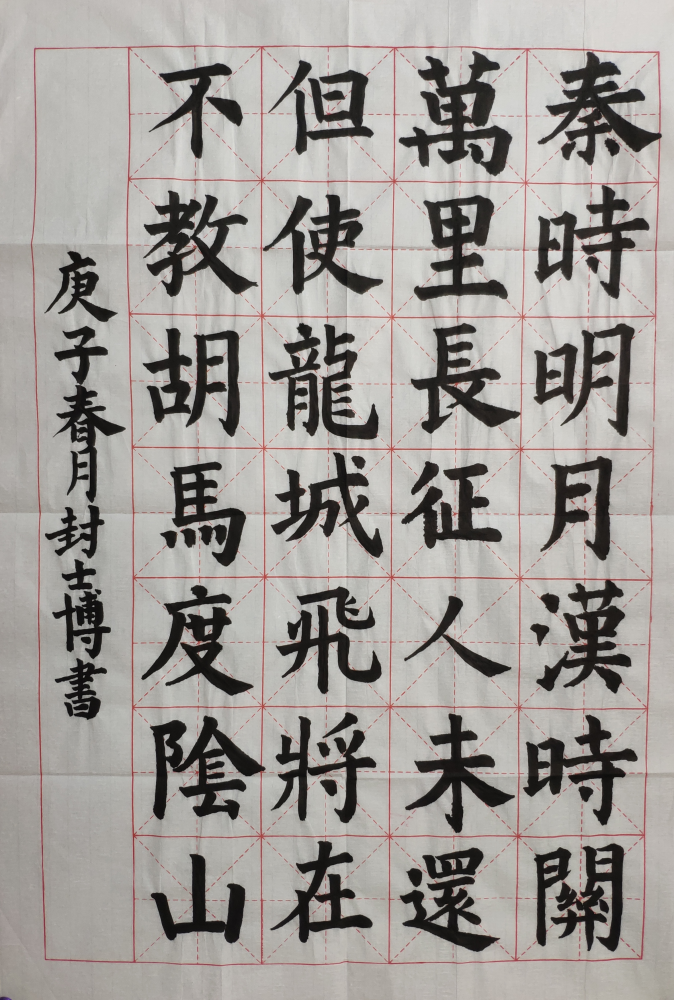 秦時明月漢時關
萬里長征人未還
但使龍城飛將在
不教胡馬度陰山
庚子春月封士博書